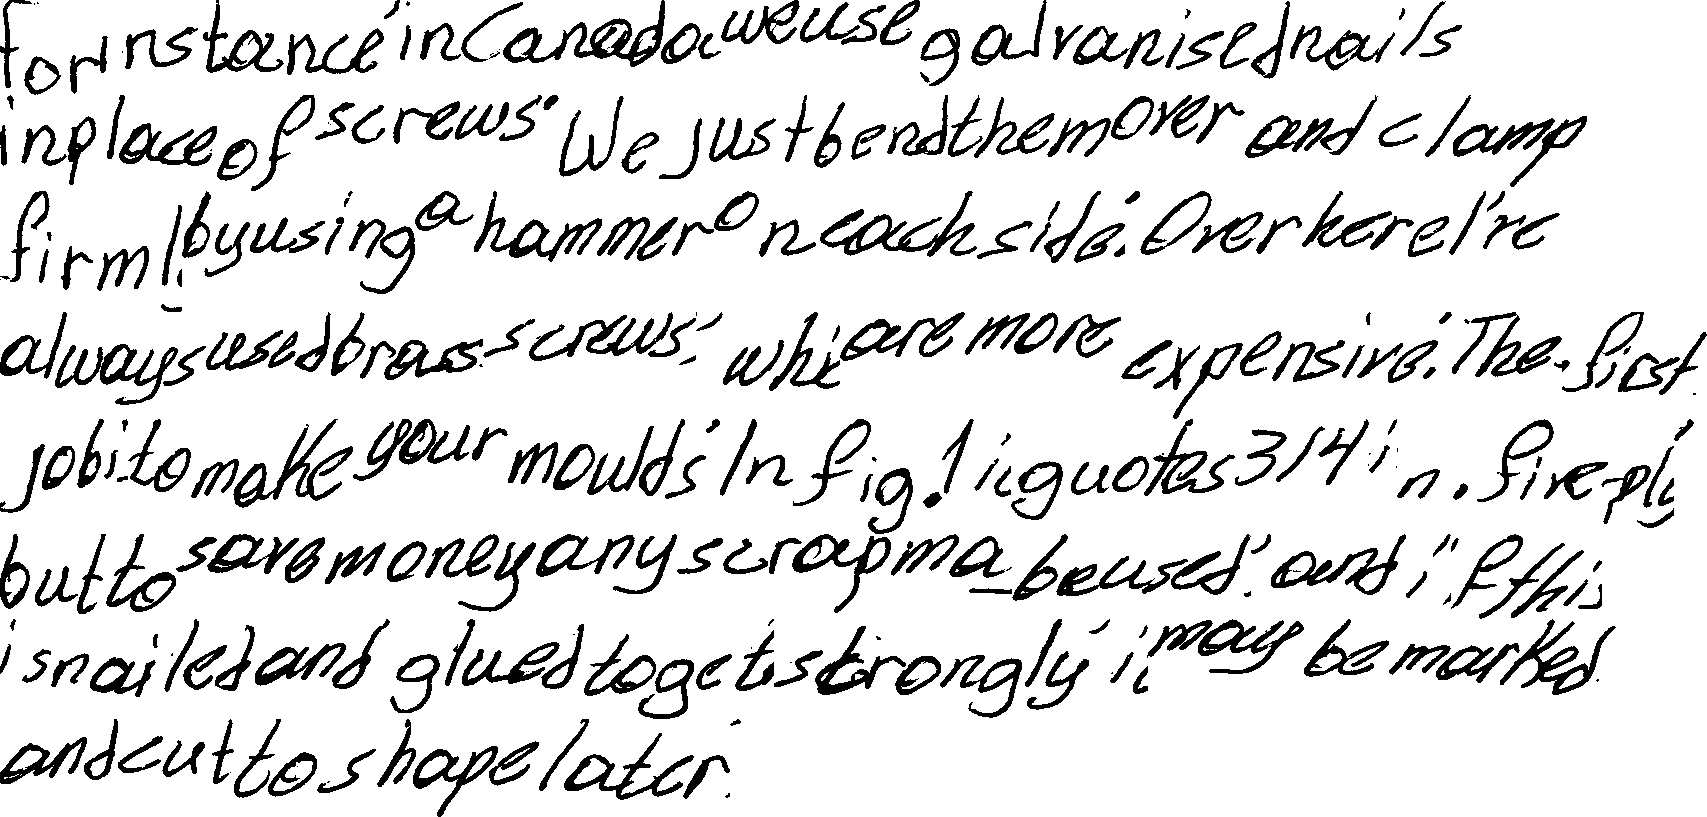 for instance in Canada we use galvanised nails
in place of screws. We just bend them over and clamp
firml by using a hammer on each side. Over here I've
always used brass screws, whi are more expensive. The first
job i to make your moulds In fig. 1 i quotes 3/4 in. five-ply
but to save money any scrap ma be used. and if this
is nailed and glued toget strongly i may be marked
and cut to shape later.